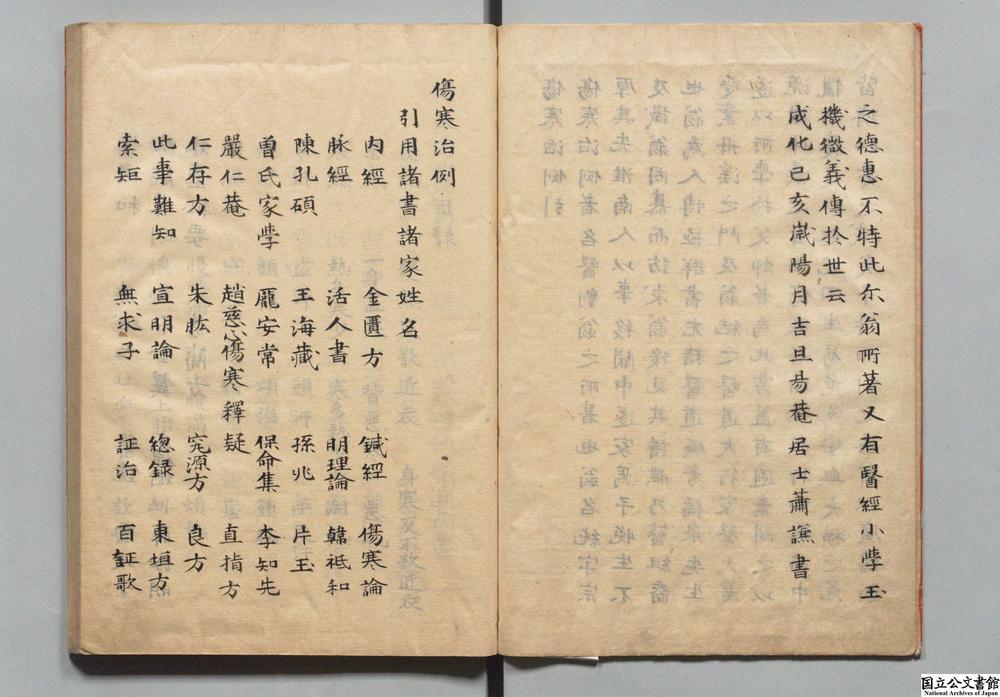 之德惠不特此尓翁所著又有醫經小學玉
機微義傳扵世云
成化己亥歲陽月吉旦昜菴居士蕭謙書
傷寒治例
引用諸書諸家姓名
内經 金匱方 鍼經 傷寒論
脉經 活人書 明理論 韓祗和
陳孔碩 王海藏 孫兆 片玉
曽氏家學 龐安常 保命集 李知先
嚴仁菴 趙慈心傷寒釋疑 直指方
仁存方 朱肱 究源方 良方
此事難知 宣明論 緫録 東垣方
索矩 無求子 証治 百証歌
国立公文書館
National Archives of Japan